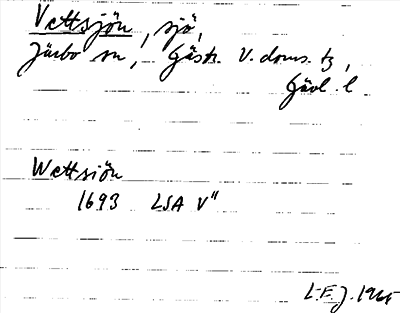 Vettsjön, sjö,
Järbo sn, Gästr. V. doms. tg,
Gävl. l
Wettsiön
1693 LSA V"
L.F.J. 1965